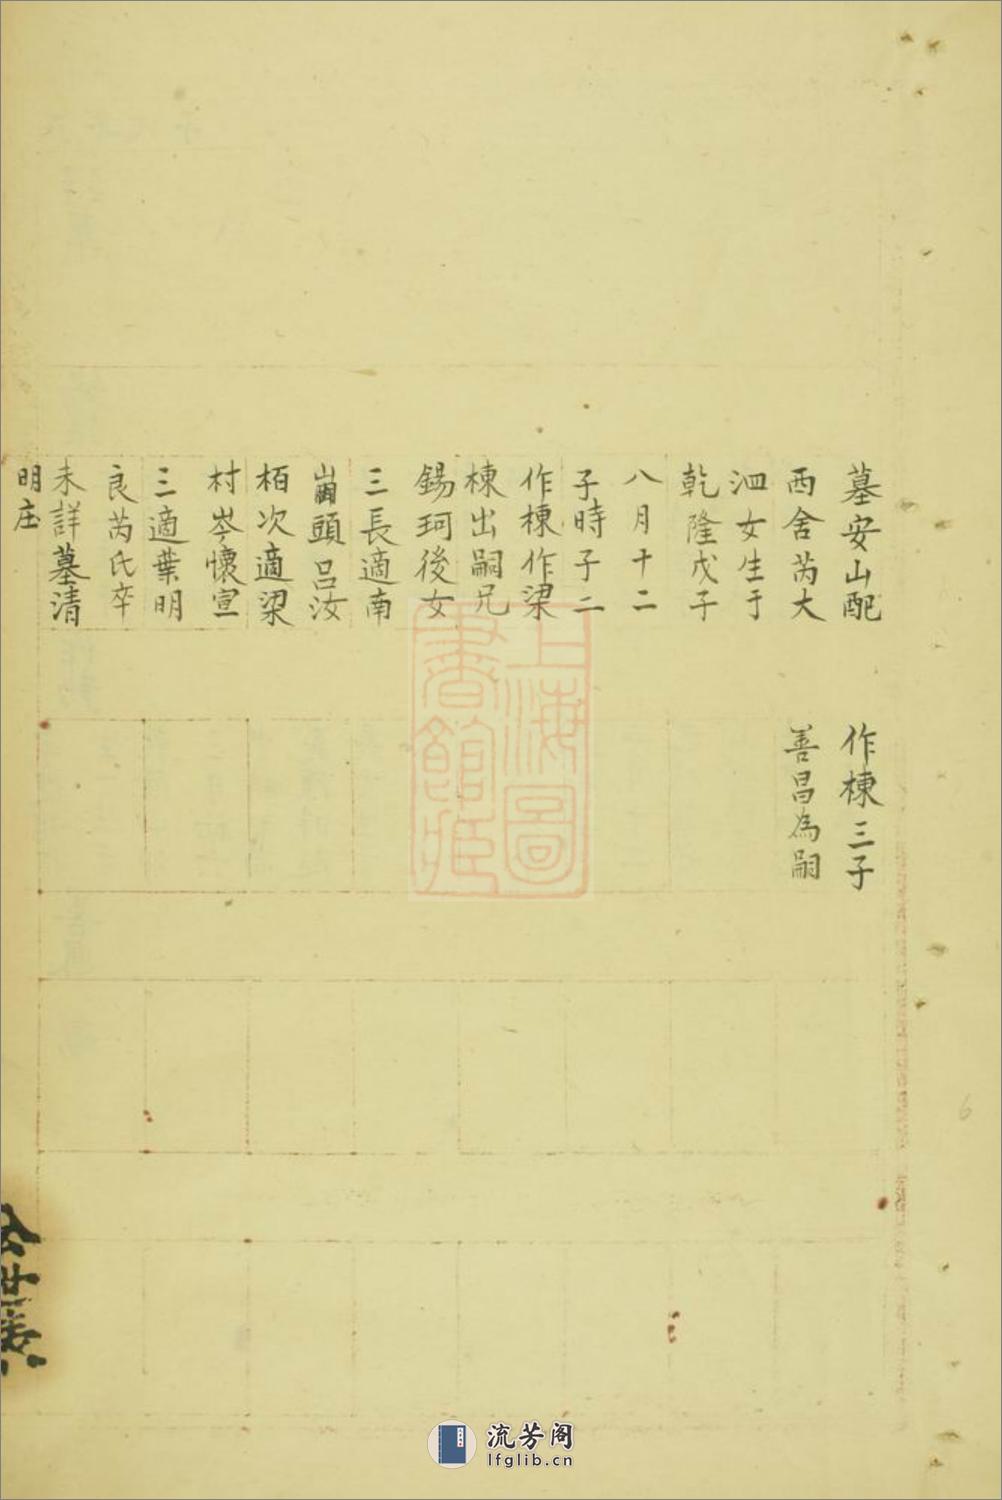 墓安山配
西舍芮大
泗女生于
乾隆戊子
八月十二
子時子二
作棟作梁
棟出嗣兄
錫珂後女
三長適南
頭呂汝
栢次適梁
村岑懷宣
三適葉明
良芮氏卒
未詳墓清
明庄
作棟三子
善昌為嗣
上海圖
書館藏
6
流芳阁
lfglib.cn